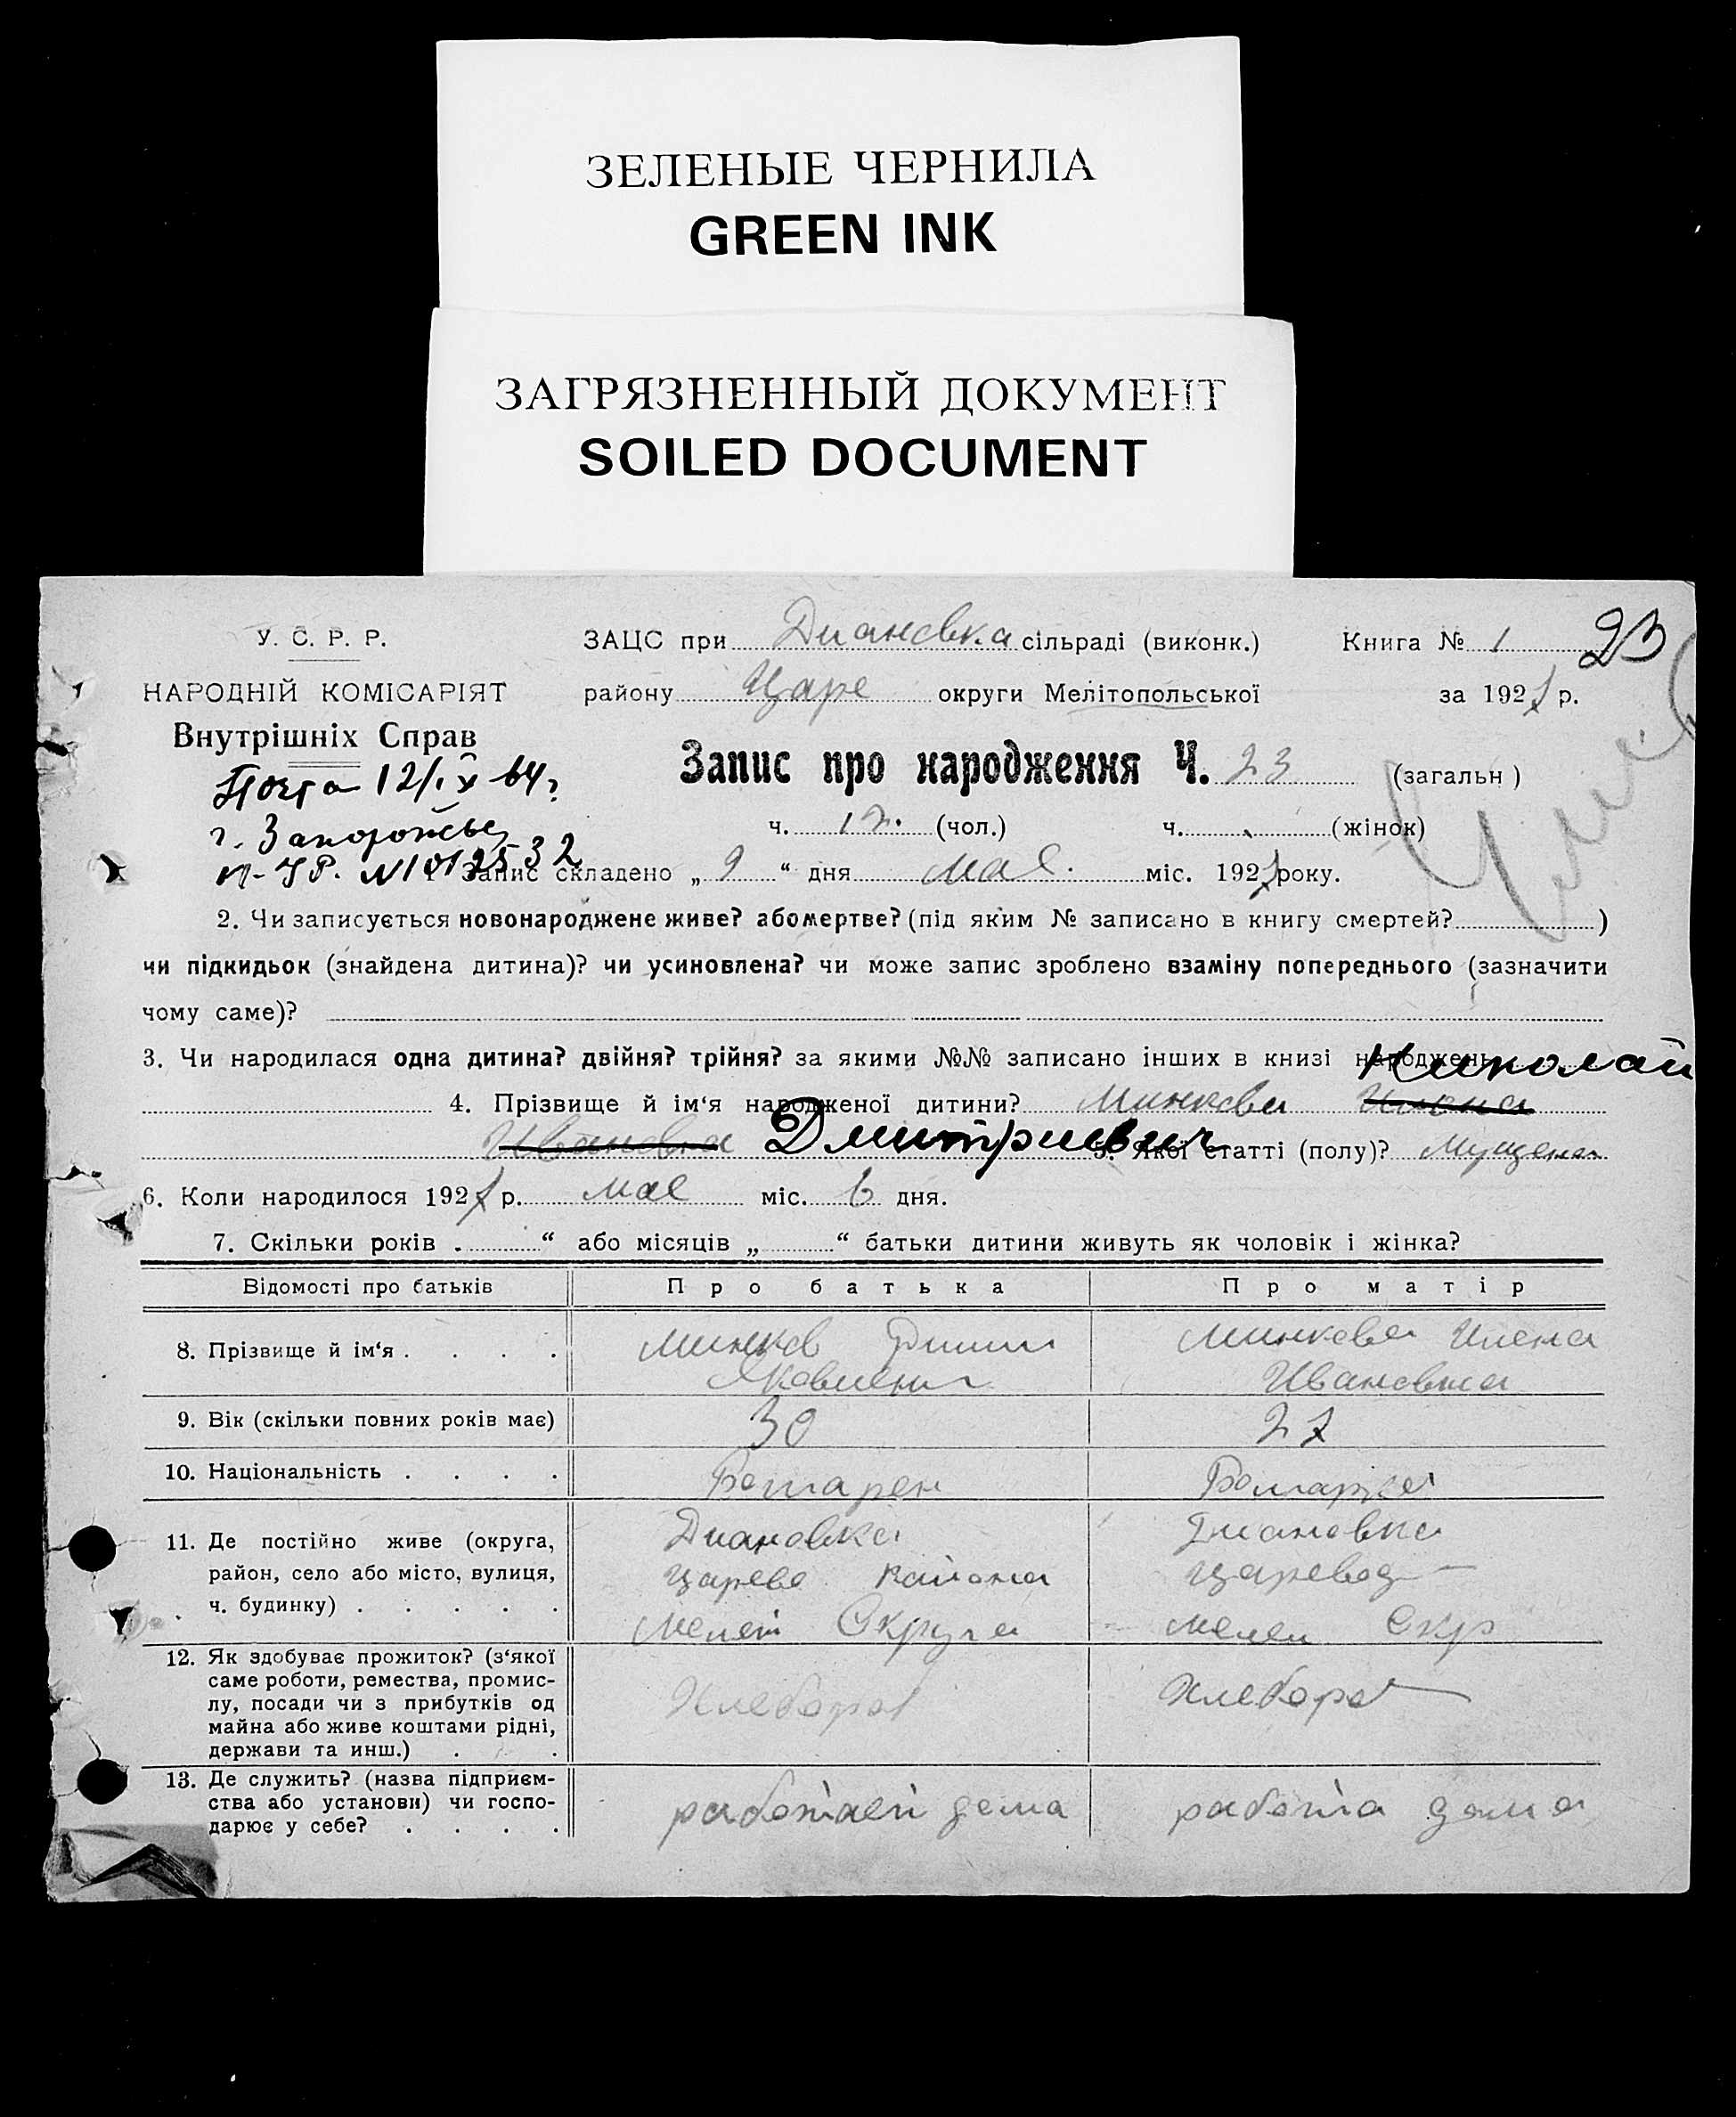 ЗЕЛЕНЫЕ ЧЕРНИЛА
GREEN INK
ЗАГРЯЗНЕННЫЙ ДОКУМЕНТ
SOILED DOCUMENT
У. С. Р. Р.
НАРОДНІЙ КОМІСАРІЯТ
Внутрішніх Справ
12/IX 64 г
г. Запорожье
ЗАЦС при Диановка сільраді (виконк.) Книга № 1 23
району Царе округи Мелітопольської за 1927 р.
Запис про народження Ч. 23 (загальн)
ч. (чол.) ч. (жінок)
1. Запис складено „ 9 “ дня мае. міс. 1927 року.
2. Чи записується новонароджене живе? або мертве? (під яким № записано в книгу смертей? )
чи підкидьок (знайдена дитина)? чи усиновлена? чи може запис зроблено взаміну попереднього (зазначити
чому саме)?
3. Чи народилася одна дитина? двійня? трійня? за якими №№ записано інших в книзі народжень Николай
4. Прізвище й ім‘я народженої дитини? Минкова
Ивановна Дмитриевич 5. Якої статті (полу)? Мущена
6. Коли народилося 1927 р. мае міс. 6 дня.
7. Скільки років . “ або місяців „ “ батьки дитини живуть як чоловік і жінка?
Відомості про батьків Про батька Про матір
8. Прізвище й ім‘я . . . . Минков Минкова Илена
Яковлевич Ивановна
9. Вік (скільки повних років має) 30 27
10. Національність . . . . Болгарен Болгарка
11. Де постійно живе (округа, Диановка Диановка
район, село або місто, вулиця, Царево района Царевод
ч. будинку) . . . . . Мелет Округа Мелет Окр
12. Як здобуває прожиток? (з‘якої
саме роботи, ремества, промис-
лу, посади чи з прибутків од Хлебороб Хлебороб
майна або живе коштами рідні,
держави та инш.) . . .
13. Де служить? (назва підприєм-
ства або установи) чи госпо- работает дома работа дома
дарює у себе? . . . .